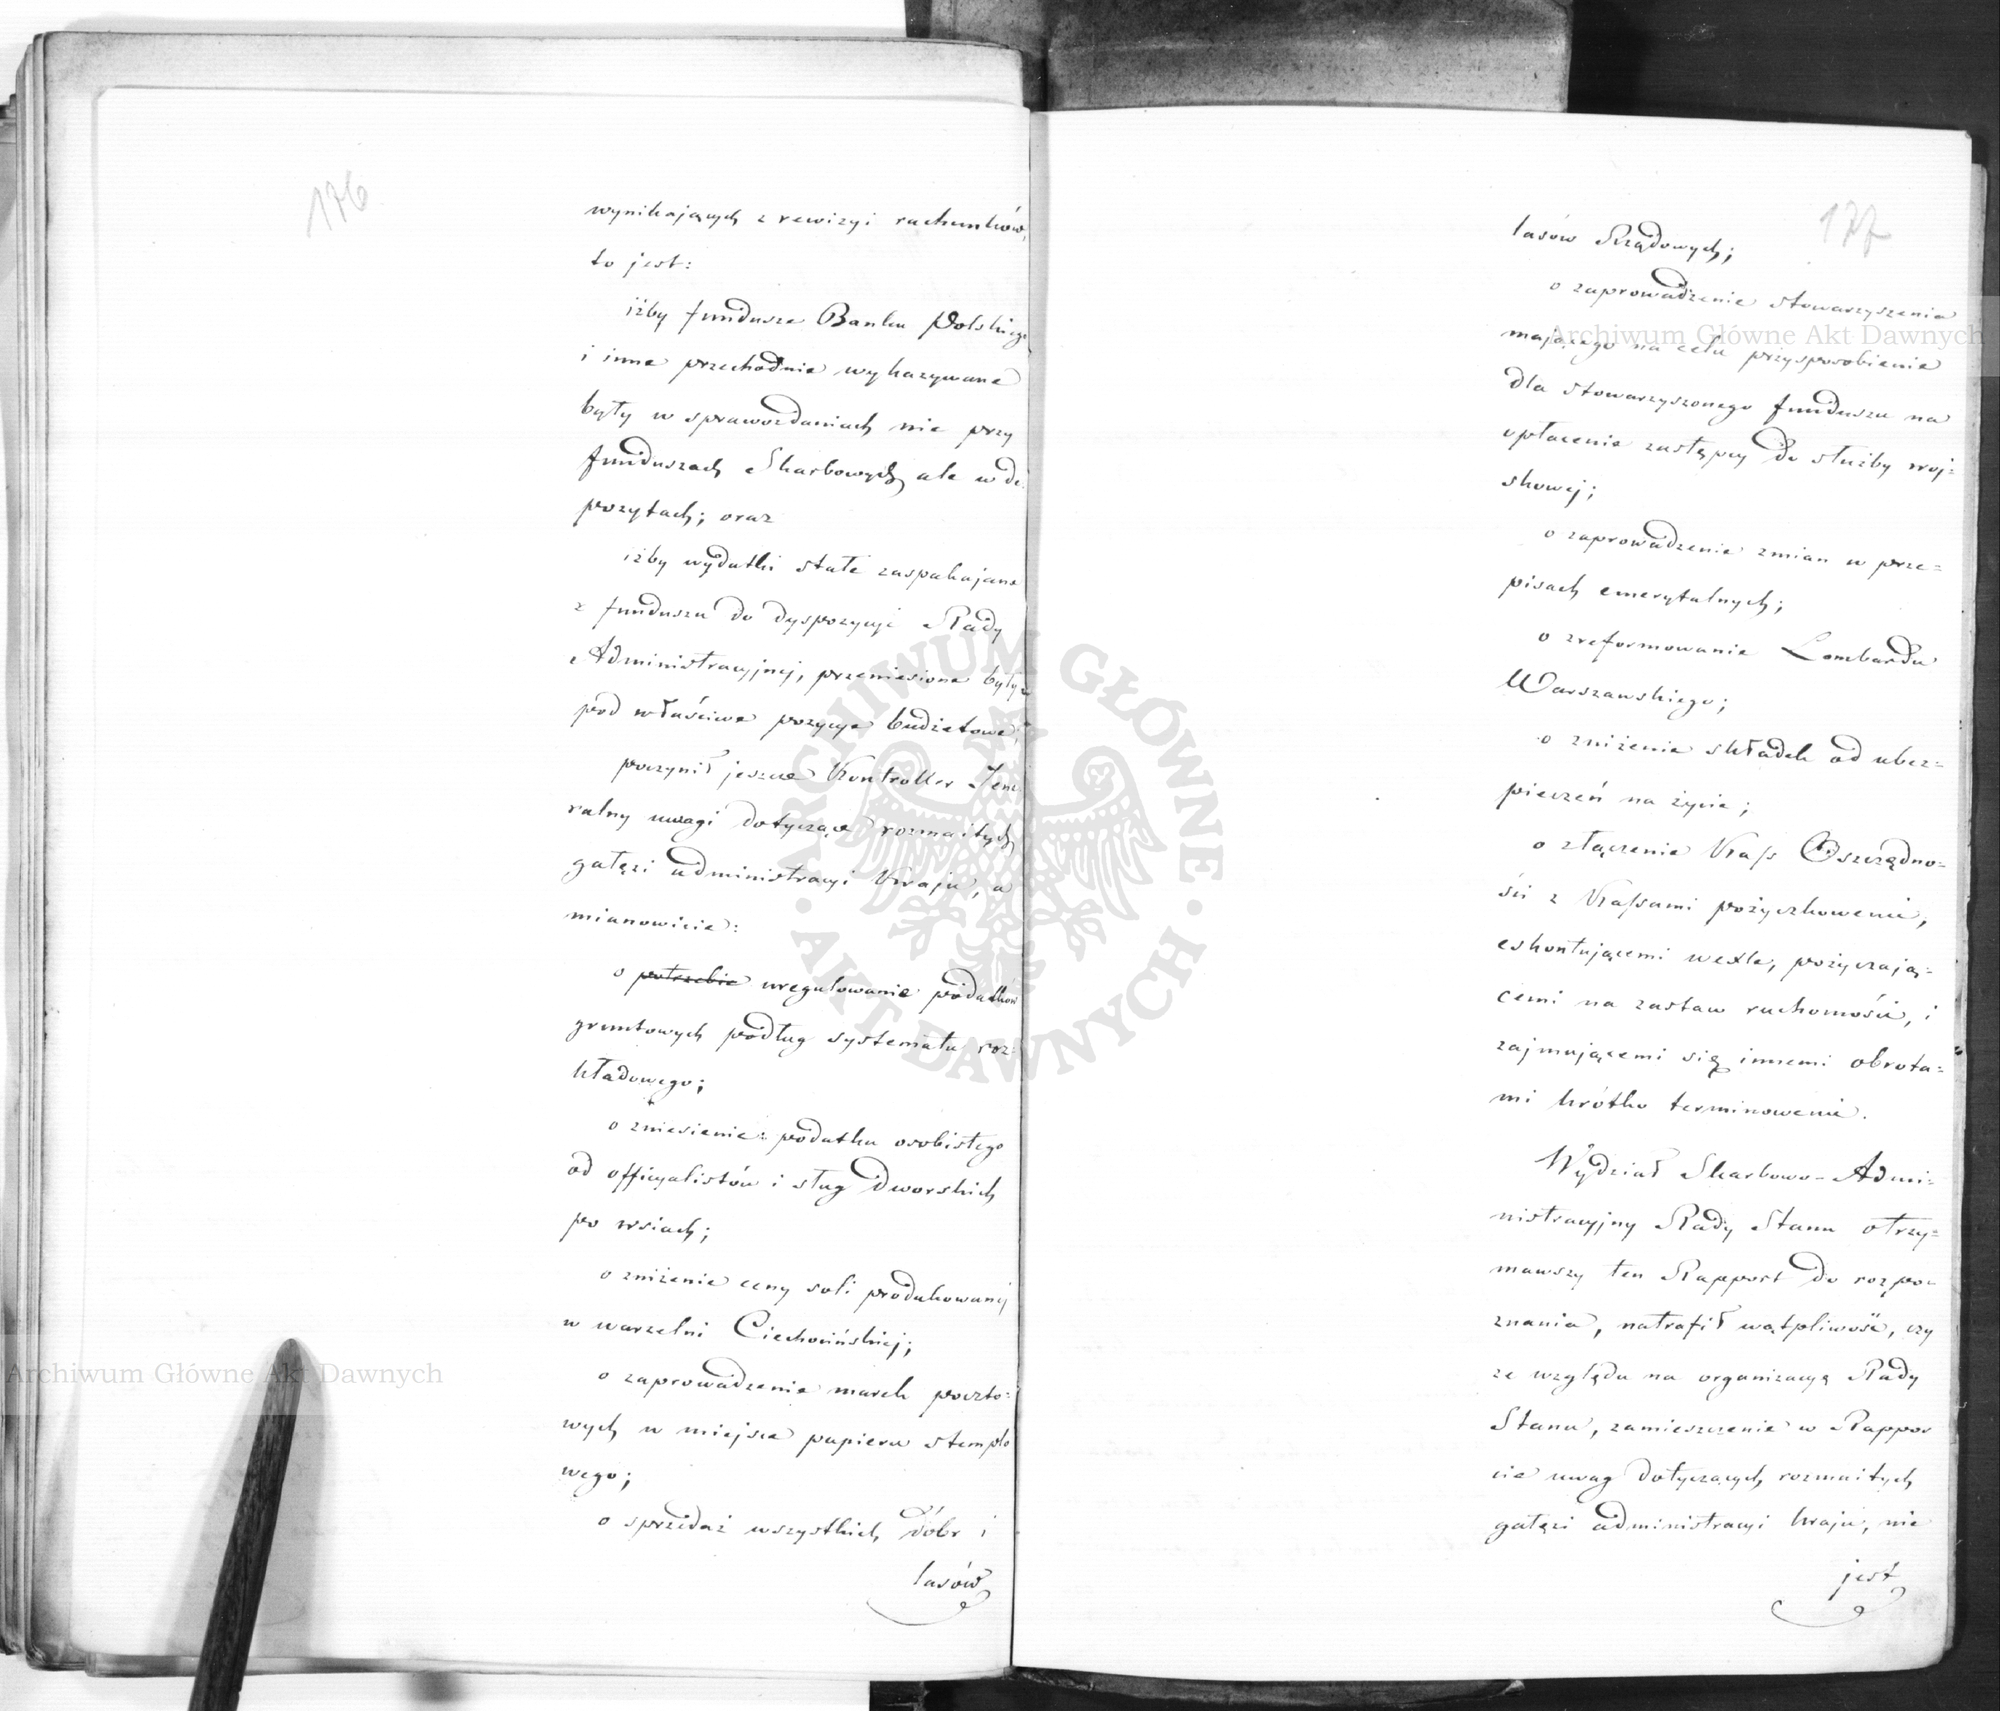 176
wynikających z rewizyi rachunków,
to jest:
iżby fundusze Banku Polskiego
i inne przechodnie wykazywane
były w sprawozdaniach nie przy
funduszach Skarbowych ale w de-
pozytach; oraz
iżby wydatki stałe zaspakajane
z funduszu do dyspozycyi Rady
Administracyjnej, przeniesione były
pod właściwe pozycye budżetowe,
poczynił jeszcze Kontroller Jene-
ralny uwagi dotyczące rozmaitych
gałęzi administracyi Kraju, a
mianowicie:
o potrzebie uregulowanie podatków
gruntowych podług systematu roz-
kładowego;
o zniesienie podatku osobistego
od officyalistów i sług dworskich
po wsiach;
o zniżenie ceny soli produkowanej
w warzelni Ciechocińskiej;
o zaprowadzenie marek poczto-
wych w miejsce papieru stemplo
wego;
o sprzedaż wszystkich dóbr i
lasów
177
lasów Rządowych;
o zaprowadzenie stowarzyszenia
mającego na celu przysposobienie
dla stowarzyszonego funduszu na
opłacenie zastępcy do służby woj-
skowej;
o zaprowadzenie zmian w prze-
pisach emerytalnych;
o zreformowanie Lombardu
Warszawskiego;
o zniżenie składek od ubez-
pieczeń na życie;
o złączenie Kass Oszczędno-
ści z Kassami pożyczkowemi,
eskontującemi wexle, pożyczają-
cemi na zastaw ruchomości, i
zajmującemi się innemi obrota-
mi krótko terminowemi.
Wydział Skarbowo-Admi-
nistracyjny Rady Stanu otrzy-
mawszy ten Rapport do rozpo-
znania, natrafił wątpliwość, czy
ze względu na organizacyą Rady
Stanu, zamieszczenie w Rappor
cie uwag dotyczących rozmaitych
gałęzi administracyi kraju, nie
jest
Archiwum Główne Akt Dawnych
Archiwum Główne Akt Dawnych
ARCHIWUM GŁÓWNE · AKT DAWNYCH ·